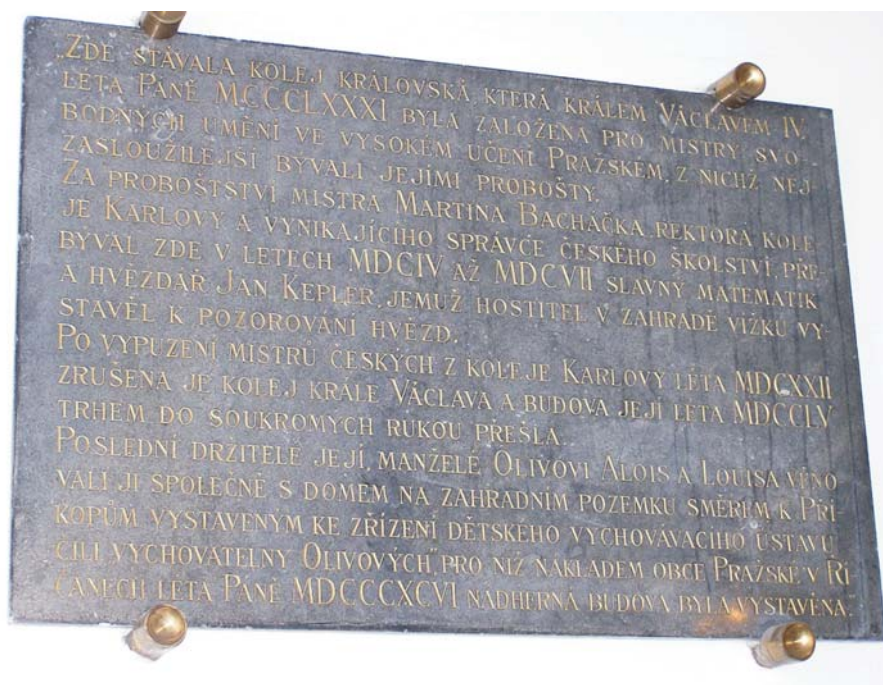 „ZDE STÁVALA KOLEJ KRÁLOVSKÁ, KTERÁ KRÁLEM VÁCLAVEM IV.
LÉTA PÁNĚ MCCCLXXXI BYLA ZALOŽENA PRO MISTRY SVO-
BODNÝCH UMĚNÍ VE VYSOKÉM UČENÍ PRAŽSKÉM, Z NICHŽ NEJ-
ZASLOUŽILEJŠÍ BÝVALI JEJÍMI PROBOŠTY.
ZA PROBOŠTSTVÍ MISTRA MARTINA BACHÁČKA, REKTORA KOLE-
JE KARLOVY A VYNIKAJÍCÍHO SPRÁVCE ČESKÉHO ŠKOLSTVÍ, PŘE-
BÝVAL ZDE V LETECH MDCIV AŽ MDCVII SLAVNÝ MATEMATIK
A HVĚZDÁŘ JAN KEPLER, JEMUŽ HOSTITEL V ZAHRADĚ VÍŽKU VY-
STAVĚL K POZOROVÁNÍ HVĚZD.
PO VYPUZENÍ MISTRŮ ČESKÝCH Z KOLEJE KARLOVY LÉTA MDCXXII
ZRUŠENA JE KOLEJ KRÁLE VÁCLAVA A BUDOVA JEJÍ LÉTA MDCCLV
TRHEM DO SOUKROMÝCH RUKOU PŘEŠLA.
POSLEDNÍ DRŽITELÉ JEJÍ, MANŽELÉ OLIVOVI ALOIS A LOUISA VĚNO
VALI JI SPOLEČNĚ S DOMEM NA ZAHRADNÍM POZEMKU SMĚREM K PŘÍ-
KOPŮM VYSTAVENÝM KE ZŘÍZENÍ DĚTSKÉHO VYCHOVÁVACÍHO ÚSTAVU
ČILI VYCHOVATELNY OLIVOVÝCH", PRO NIŽ NÁKLADEM OBCE PRAŽSKÉ V ŘÍ
ČANECH LÉTA PÁNĚ MDCCCXCVI NÁDHERNÁ BUDOVA BYLA VYSTAVĚNA."